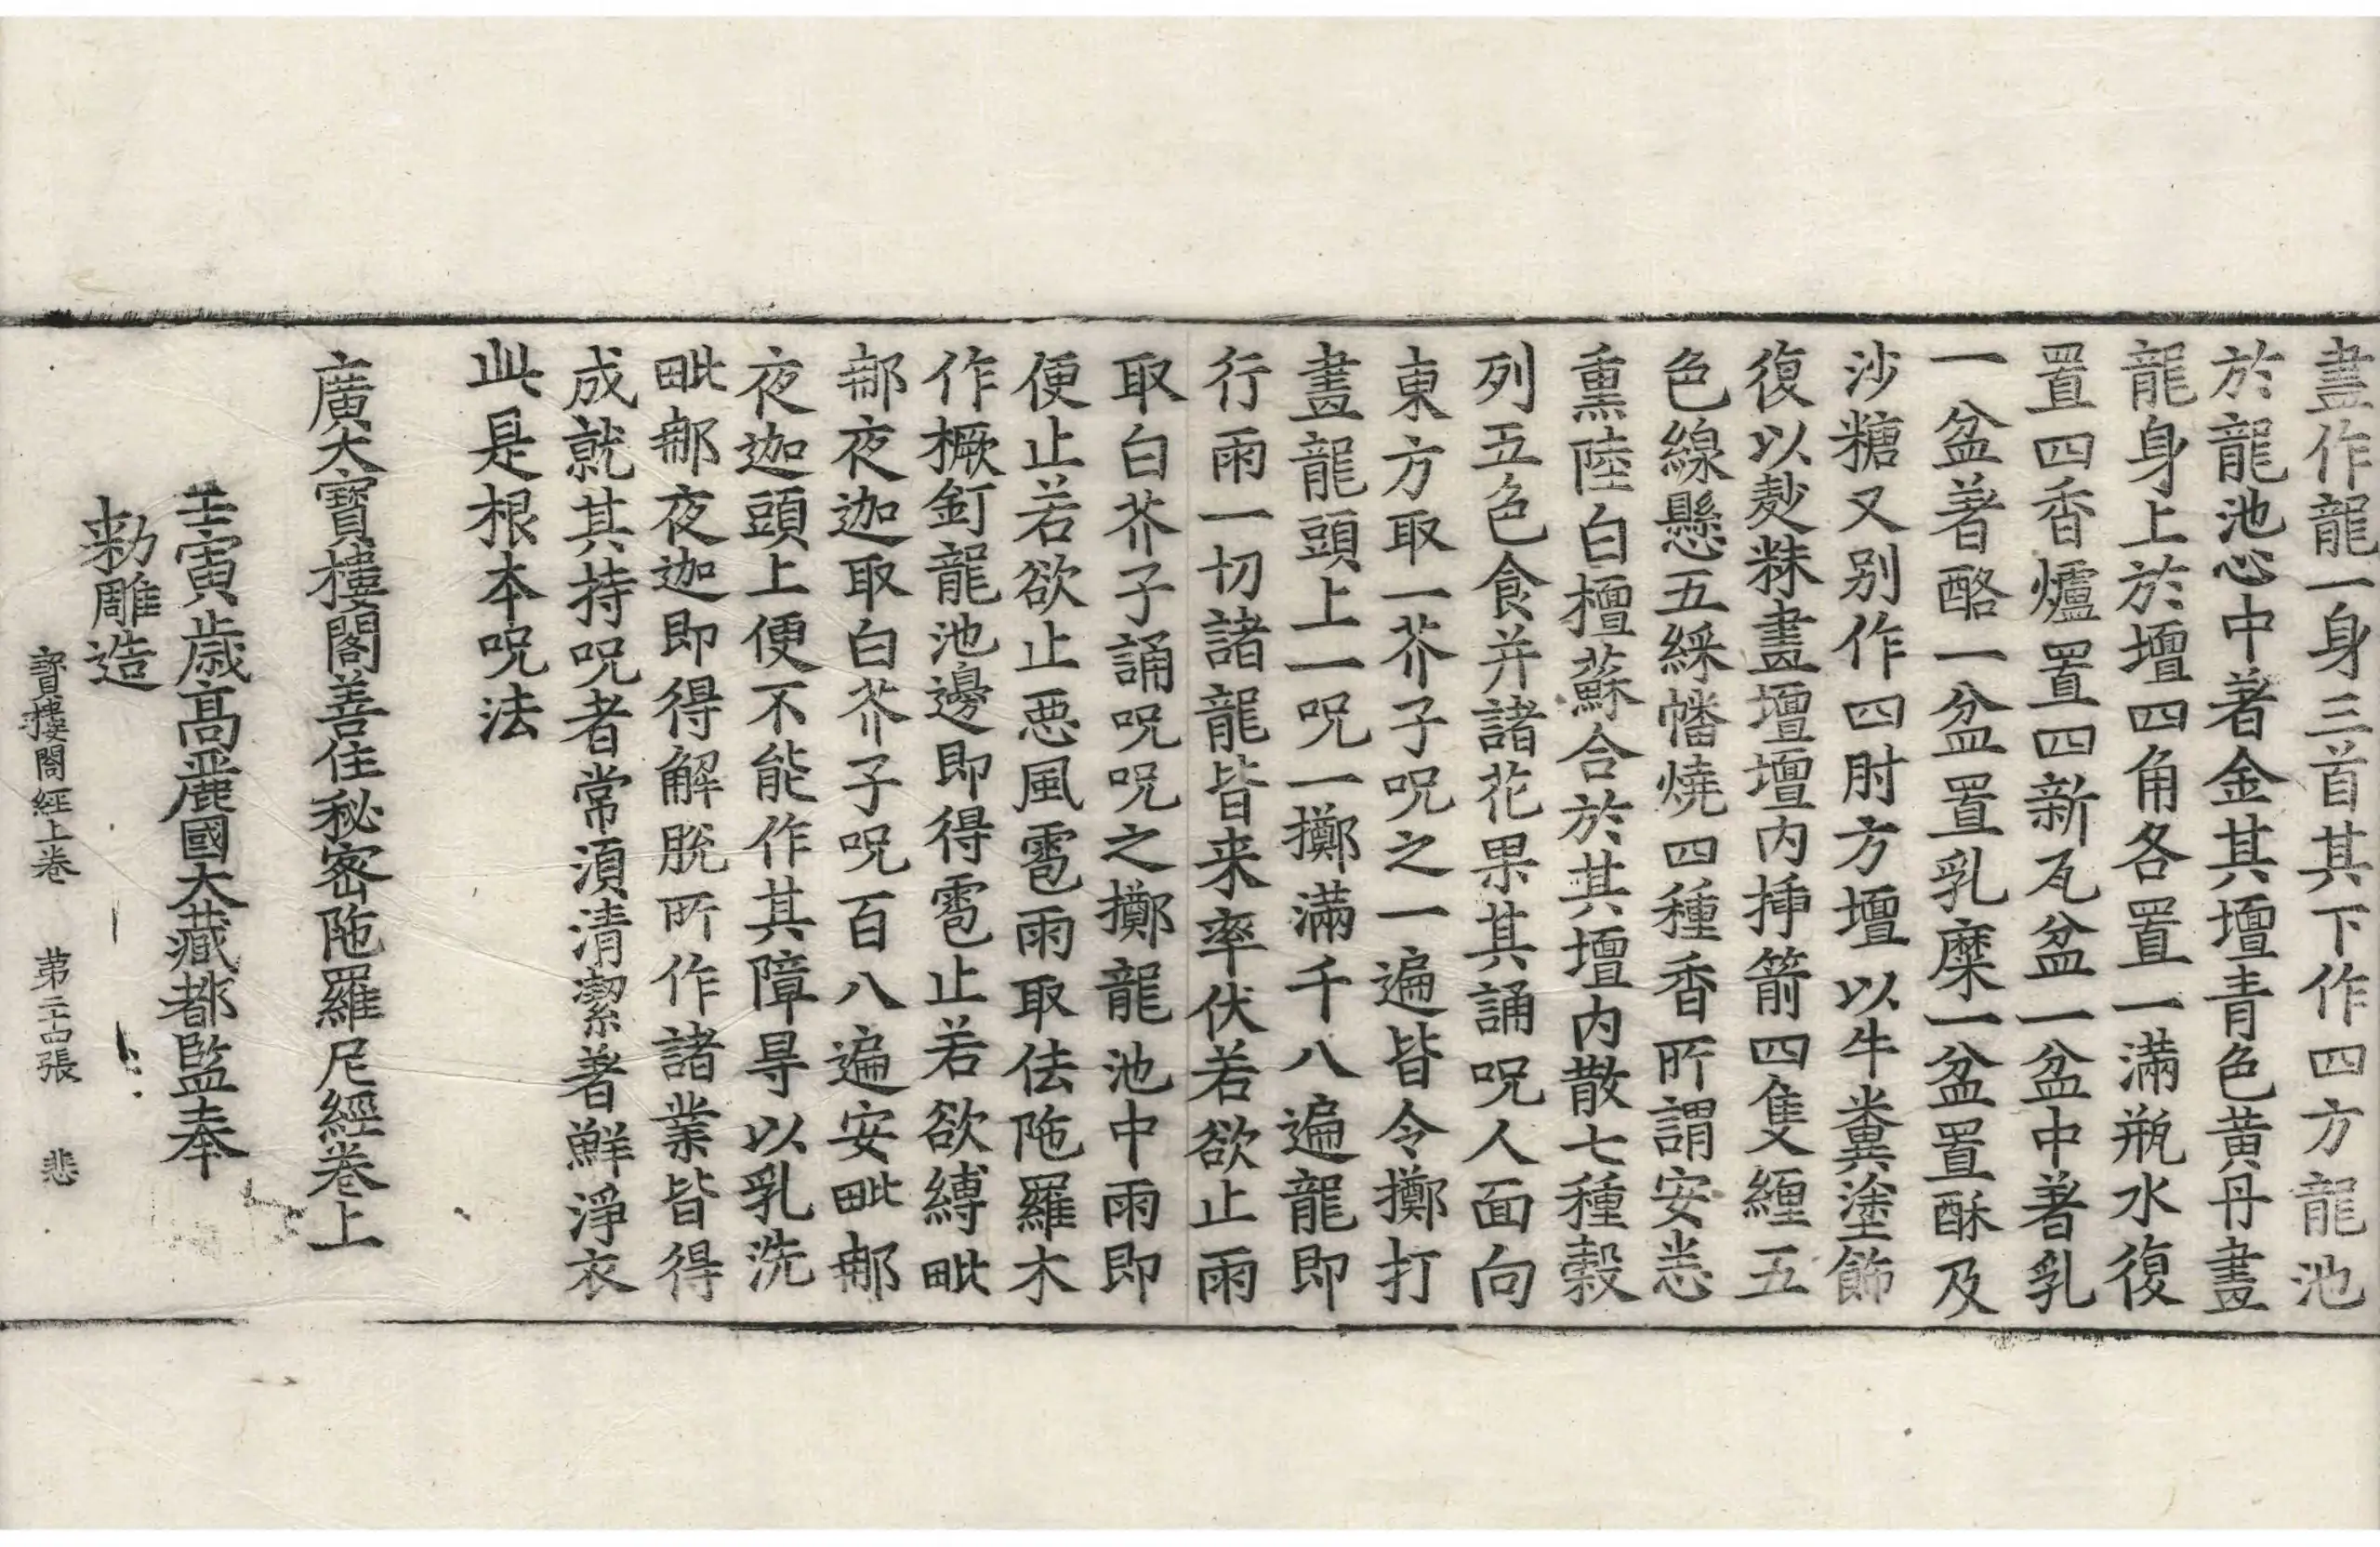 畫作龍一身三首其下作四方龍池
於龍池心中著金其壇青色黃丹畫
龍身上於壇四角各置一滿瓶水復
置四香爐置四新瓦盆一盆中著乳
一盆著酪一盆置乳糜一盆置酥及
沙糖又別作四肘方壇以牛糞塗飾
復以麨粖畫壇壇內揷箭四隻纏五
色線懸五綵幡燒四種香所謂安悉
熏陸白檀蘇合於其壇內散七種穀
列五色食并諸花果其誦呪人面向
東方取一芥子呪之一遍皆令擲打
畫龍頭上一呪一擲滿千八遍龍即
行雨一切諸龍皆来率伏若欲止雨
取白芥子誦呪呪之擲龍池中雨即
便止若欲止惡風雹雨取佉陁羅木
作橛釘龍池邊即得雹止若欲縛毗
那夜迦取白芥子呪百八遍安毗那
夜迦頭上便不能作其障㝵以乳洗
毗那夜迦即得解脫所作諸業皆得
成就其持呪者常須清潔著鮮淨衣
此是根本呪法
廣大寶樓閣善住秘密陁羅尼經卷上
壬寅歲高麗國大藏都監奉
勑雕造
寶樓閣經上卷 苐二十四張 悲